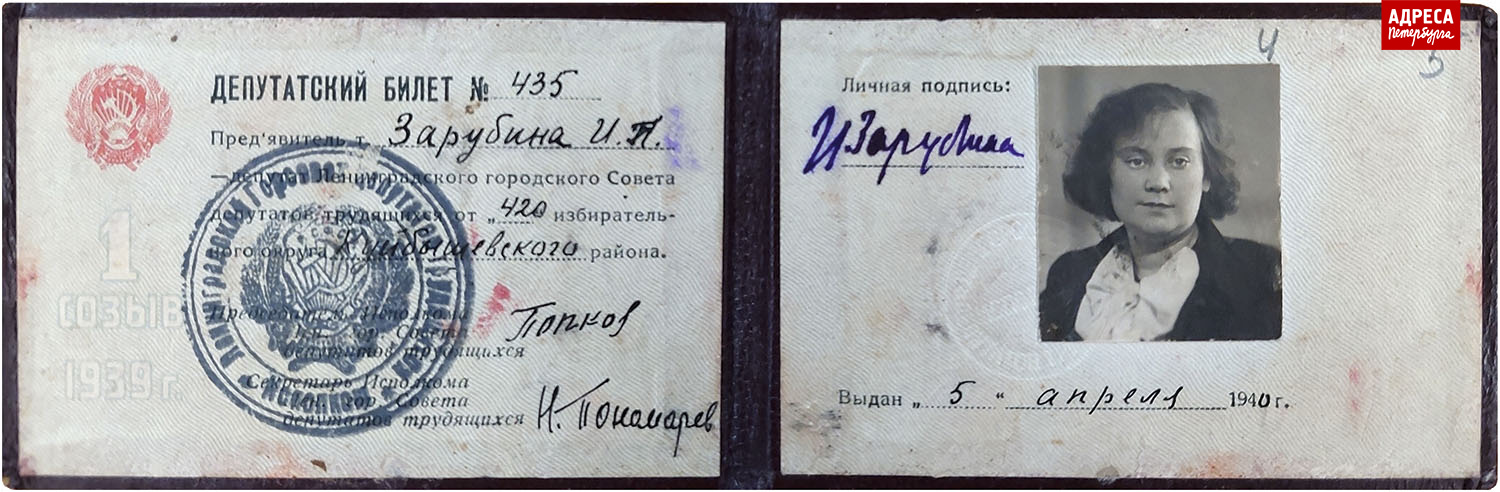 ДЕПУТАТСКИЙ БИЛЕТ № 435
Пред'явитель т. Зарубина И.П.
—депутат Ленинградского городского Совета
депутатов трудящихся от „420 избиратель-
ного округа Куйбышевского района.
1
СОЗЫВ
1939 г.
Председатель Исполкома
Лен. гор Совета
депутатов трудящихся
Попков
Секретарь Исполкома
Лен. гор Совета
депутатов трудящихся
Н. Пономарев
Личная подпись:
ИЗарубина
Выдан „ 5 “ апреля 1940 г.
АДРЕСА
Петербурга
4
5